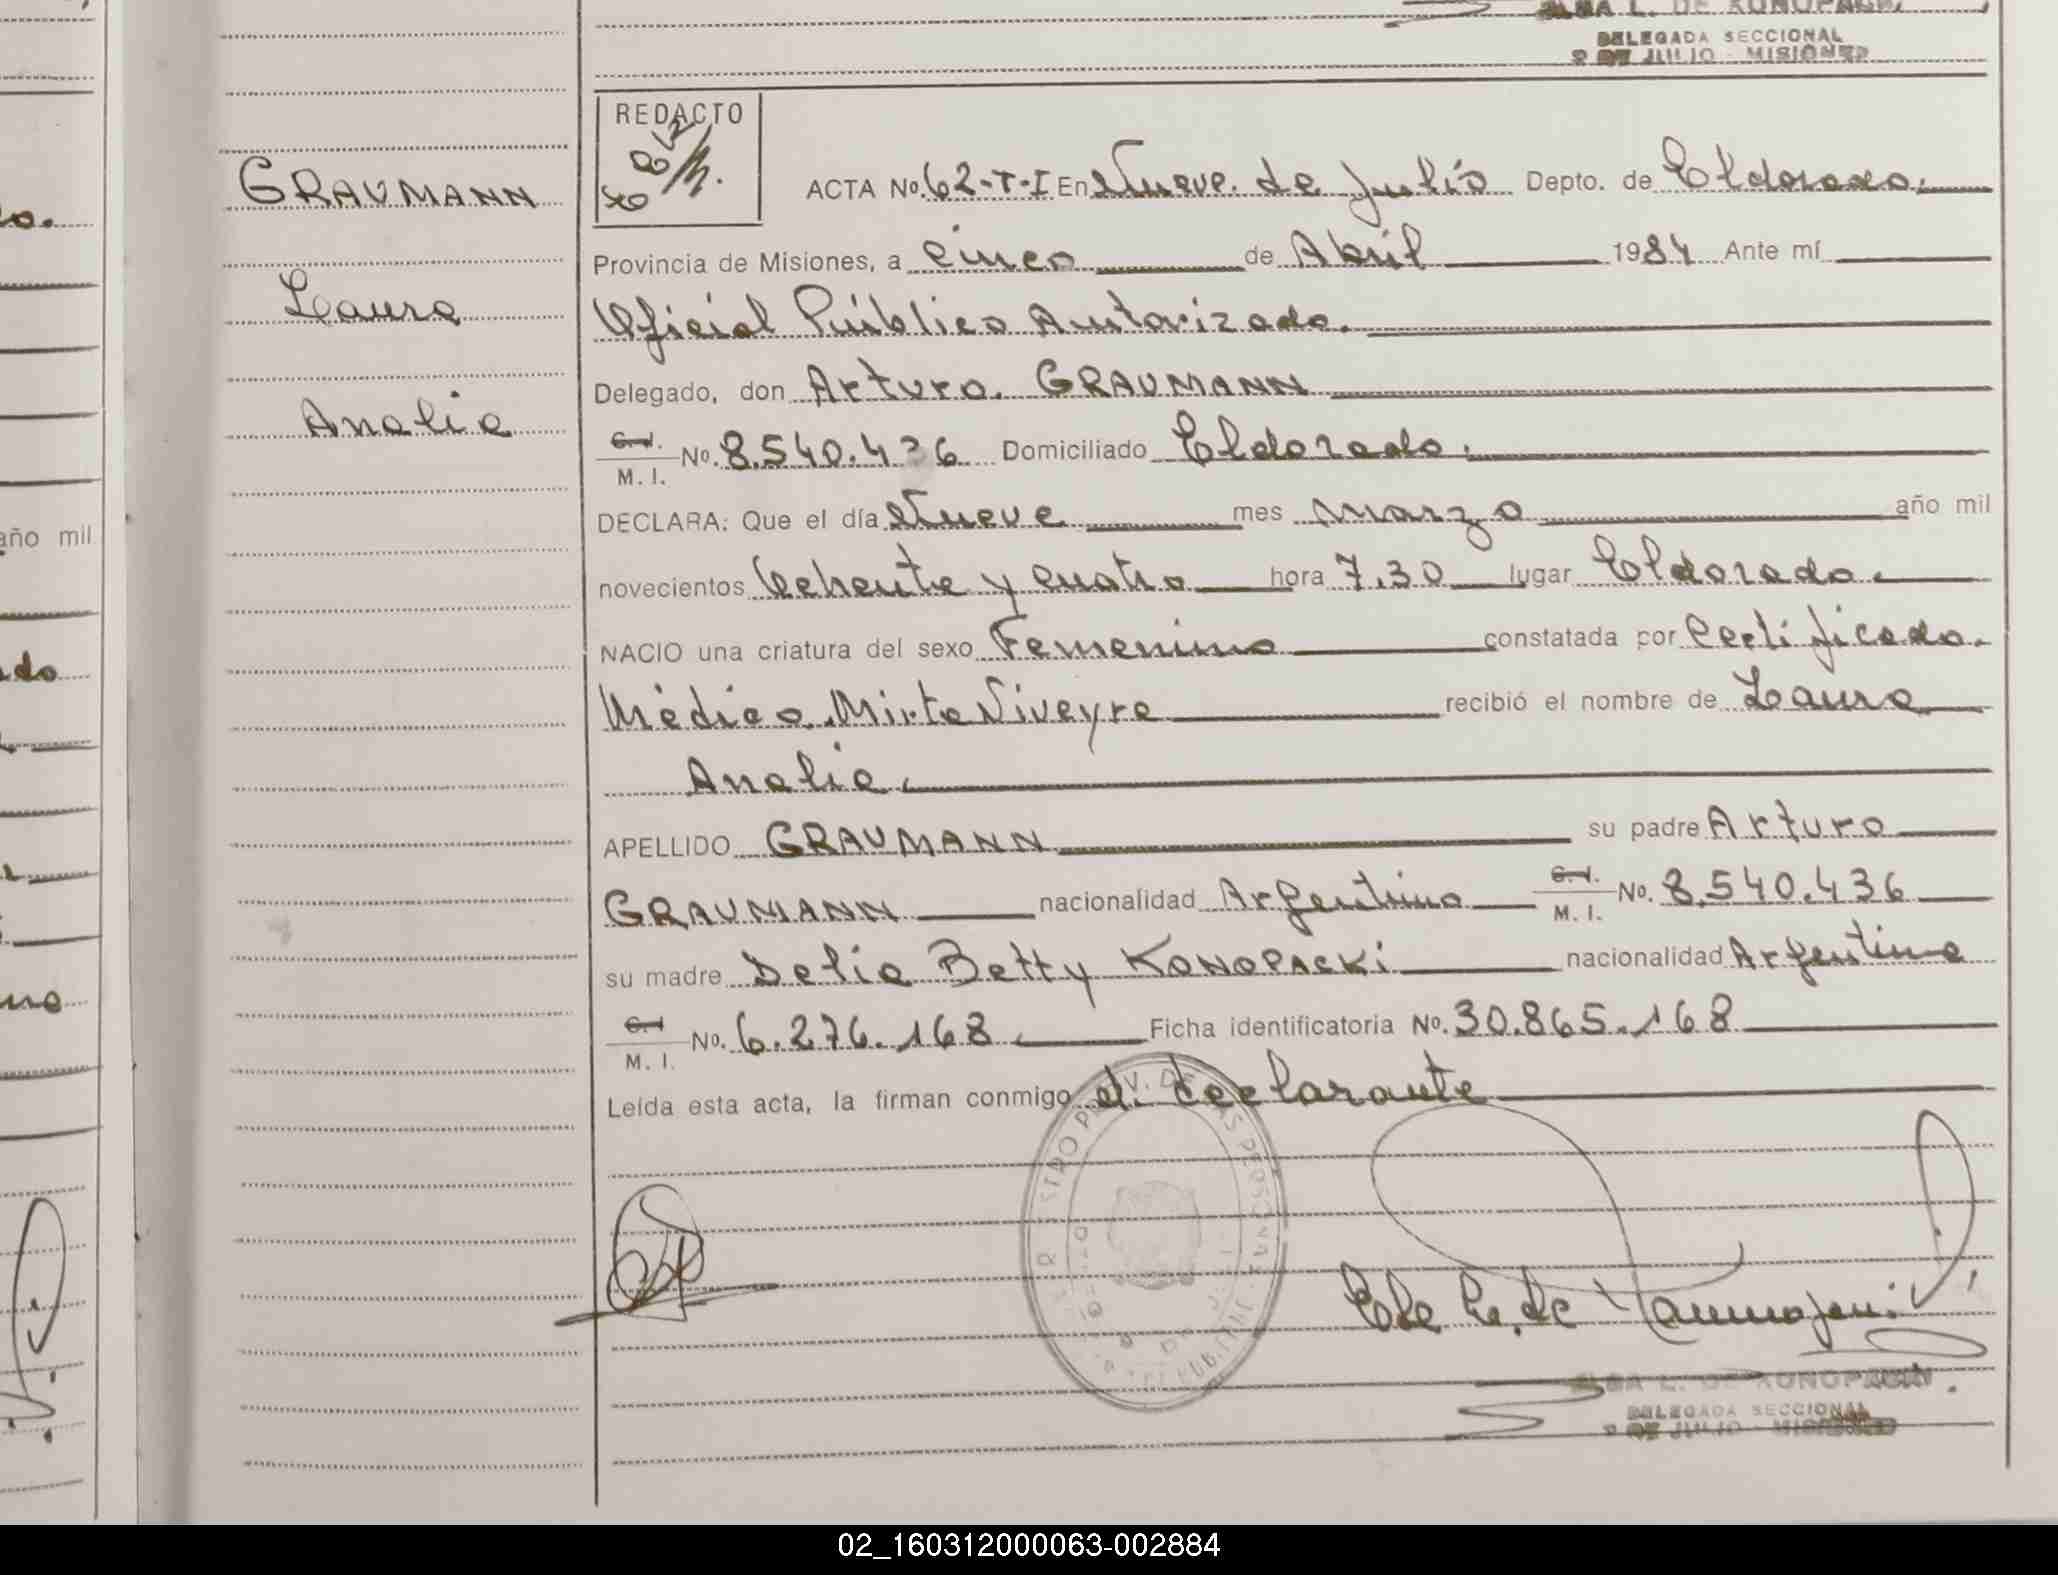 ALBA L. DE KONOPACKI
DELEGADA SECCIONAL
9 DE JULIO - MISIONES
REDACTO
GRAUMANN
Laura
Analia
ACTA No. 62-T-I En Nueve de Julio Depto. de Eldorado.
Provincia de Misiones, a Cinco de Abril 1984 Ante mí
Oficial Público Autorizado.
Delegado, don Arturo GRAUMANN
C.I. M.I. No. 8.540.436 Domiciliado Eldorado.
DECLARA: Que el día Nueve mes Marzo año mil
novecientos Ochenta y Cuatro hora 7.30 lugar Eldorado.
NACIO una criatura del sexo Femenino constatada por Certificado
Médico Mirta Viveyre recibió el nombre de Laura
Analia.
APELLIDO GRAUMANN su padre Arturo
GRAUMANN nacionalidad Argentino C.I. M.I. No. 8.540.436
su madre Delia Betty KONOPACKI nacionalidad Argentina
C.I. M.I. No. 6.276.168 Ficha identificatoria No. 30.865.168
Leída esta acta, la firman conmigo el declarante
ALBA L. DE KONOPACKI
DELEGADA SECCIONAL
9 DE JULIO - MISIONES
año mil
02_160312000063-002884